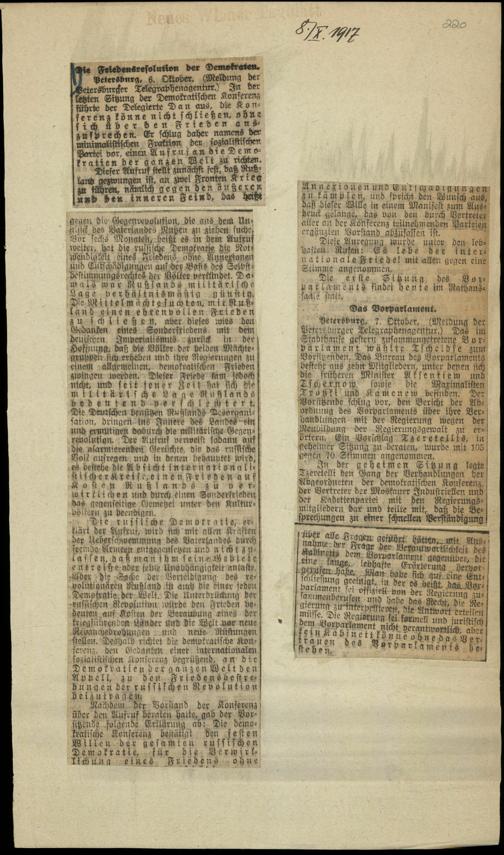 Neues Wiener Tagblatt
8./X. 1917
220
Die Friedensresolution der Demokraten.
Petersburg, 6. Oktober. (Meldung der
Petersburger Telegraphenagentur.) In der
letzten Sitzung der Demokratischen Konferenz
führte der Delegierte Dan aus, die Kon-
ferenz könne nicht schließen, ohne
sich über den Frieden aus-
zusprechen. Er schlug daher namens der
minimalistischen Fraktion der sozialistischen
Partei vor, einen Aufruf an die Demo-
kratien der ganzen Welt zu richten.
Dieser Aufruf stellt zunächst fest, daß Ruß-
land gezwungen ist, an zwei Fronten Krieg
zu führen, nämlich gegen den äußeren
und den inneren Feind, das heißt
gegen die Gegenrevolution, die aus dem Un-
glück des Vaterlandes Nutzen zu ziehen suche.
Vor sechs Monaten, heißt es in dem Aufruf
weiter, hat die russische Demokratie die Not-
wendigkeit eines Friedens ohne Annexionen
und Entschädigungen auf der Basis des Selbst-
bestimmungsrechtes der Völker verkündet. Da-
mals war Rußlands militärische
Lage verhältnismäßig günstig.
Die Mittelmächte suchten, mit Ruß-
land einen ehrenvollen Frieden
zu schließen, aber dieses wies den
Gedanken eines Sonderfriedens mit dem
deutschen Imperialismus zurück in der
Hoffnung, daß die Völker der beiden Mächte-
gruppen sich erheben und ihre Regierungen zu
einem allgemeinen, demokratischen Frieden
zwingen werden. Dieser Friede kam jedoch
nicht, und seit jener Zeit hat sich die
militärische Lage Rußlands
bedeutend verschlechtert.
Die Deutschen benützen Rußlands Desorgani-
sation, dringen ins Innere des Landes ein
und ermutigen dadurch die militärische Gegen-
revolution. Der Aufruf verweist sodann auf
die alarmierenden Gerüchte, die das russische
Volk aufregen und in denen behauptet wird,
es bestehe die Absicht internationali-
stischer Kreise, einen Frieden auf
Kosten Rußlands zu ver-
wirklichen und durch einen Sonderfrieden
das gegenseitige Gemetzel unter den Kultur-
völkern zu beendigen.
Die russische Demokratie, er-
klärt der Aufruf, wird sich mit allen Kräften
der Ueberschwemmung des Vaterlandes durch
fremde Armeen entgegensetzen und nicht zu-
lassen, daß man ihm sein Gebiete
entreiße oder seine Unabhängigkeit antaste,
über die Sache der Verteidigung des re-
volutionären Rußland auch die einer jeden
Demokratie der Welt. Die Unterdrückung der
russischen Revolution würde den Frieden be-
deuten auf Kosten der Beraubung eines der
kriegführenden Länder und die Welt vor neue
Revanchedrohungen und neue Rüstungen
stellen. Deshalb richte die demokratische Kon-
ferenz, den Gedanken einer internationalen
sozialistischen Konferenz begrüßend, an die
Demokratien der ganzen Welt den
Appell, zu den Friedensbestre-
bungen der russischen Revolution
beizutragen.
Nachdem der Vorstand der Konferenz
über den Aufruf beraten hatte, gab der Vor-
sitzende folgende Erklärung ab: Die demo-
kratische Konferenz bestätigt den festen
Willen der gesamten russischen
Demokratie, für die Verwirk-
lichung eines Friedens ohne
Annexionen und Entschädigungen
zu kämpfen, und spricht den Wunsch aus,
daß dieser Wille in einem Manifest zum Aus-
druck gelange, das von den durch Vertreter
aller an der Konferenz teilnehmenden Parteien
ergänzten Vorstand abzufassen ist.
Diese Anregung wurde unter den leb-
haften Rufen: Es lebe der inter-
nationale Friede! mit allen gegen eine
Stimme angenommen.
Die erste Sitzung des Vor-
parlaments findet heute im Rathaus-
saale statt.
Das Vorparlament.
Petersburg, 7. Oktober. (Meldung der
Petersburger Telegraphenagentur.) Das im
Stadthause gestern zusammengetretene Vor-
parlament wählte Tscheidse zum
Vorsitzenden. Das Bureau des Vorparlaments
besteht aus zehn Mitgliedern, unter denen sich
die früheren Minister Awksentiew und
Tschernow sowie die Maximalisten
Trotzki und Kamenew befinden. Der
Vorsitzende schlug vor, den Bericht der Ab-
ordnung des Vorparlaments über ihre Ver-
handlungen mit der Regierung wegen der
Neubildung der Regierungsgewalt zu er-
örtern. Ein Vorschlag Tzeretellis, in
geheimer Sitzung zu beraten, wurde mit 105
gegen 70 Stimmen angenommen.
In der geheimen Sitzung legte
Tzeretelli den Gang der Verhandlungen der
Abgeordneten der demokratischen Konferenz,
der Vertreter der Moskauer Industriellen und
der Kadettenpartei mit den Regierungs-
mitgliedern dar und teilte mit, daß die Be-
sprechungen zu einer schnellen Verständigung
über alle Fragen geführt hätten, mit Aus-
nahme der Frage der Verantwortlichkeit des
Kabinetts dem Vorparlament gegenüber, die
eine lange, lebhafte Erörterung hervor-
gerufen habe. Man habe sich auf eine Ent-
schließung geeinigt, in der es heißt, das Vor-
parlament sei offiziell von der Regierung zu
zusammenberufen und habe das Recht, die Re-
gierung zu interpellieren, die Antwort erteilen
müsse. Die Regierung sei formell und juristisch
dem Vorparlament nicht verantwortlich, aber
kein Kabinett könne ohne das Ver-
trauen des Vorparlaments be-
stehen.